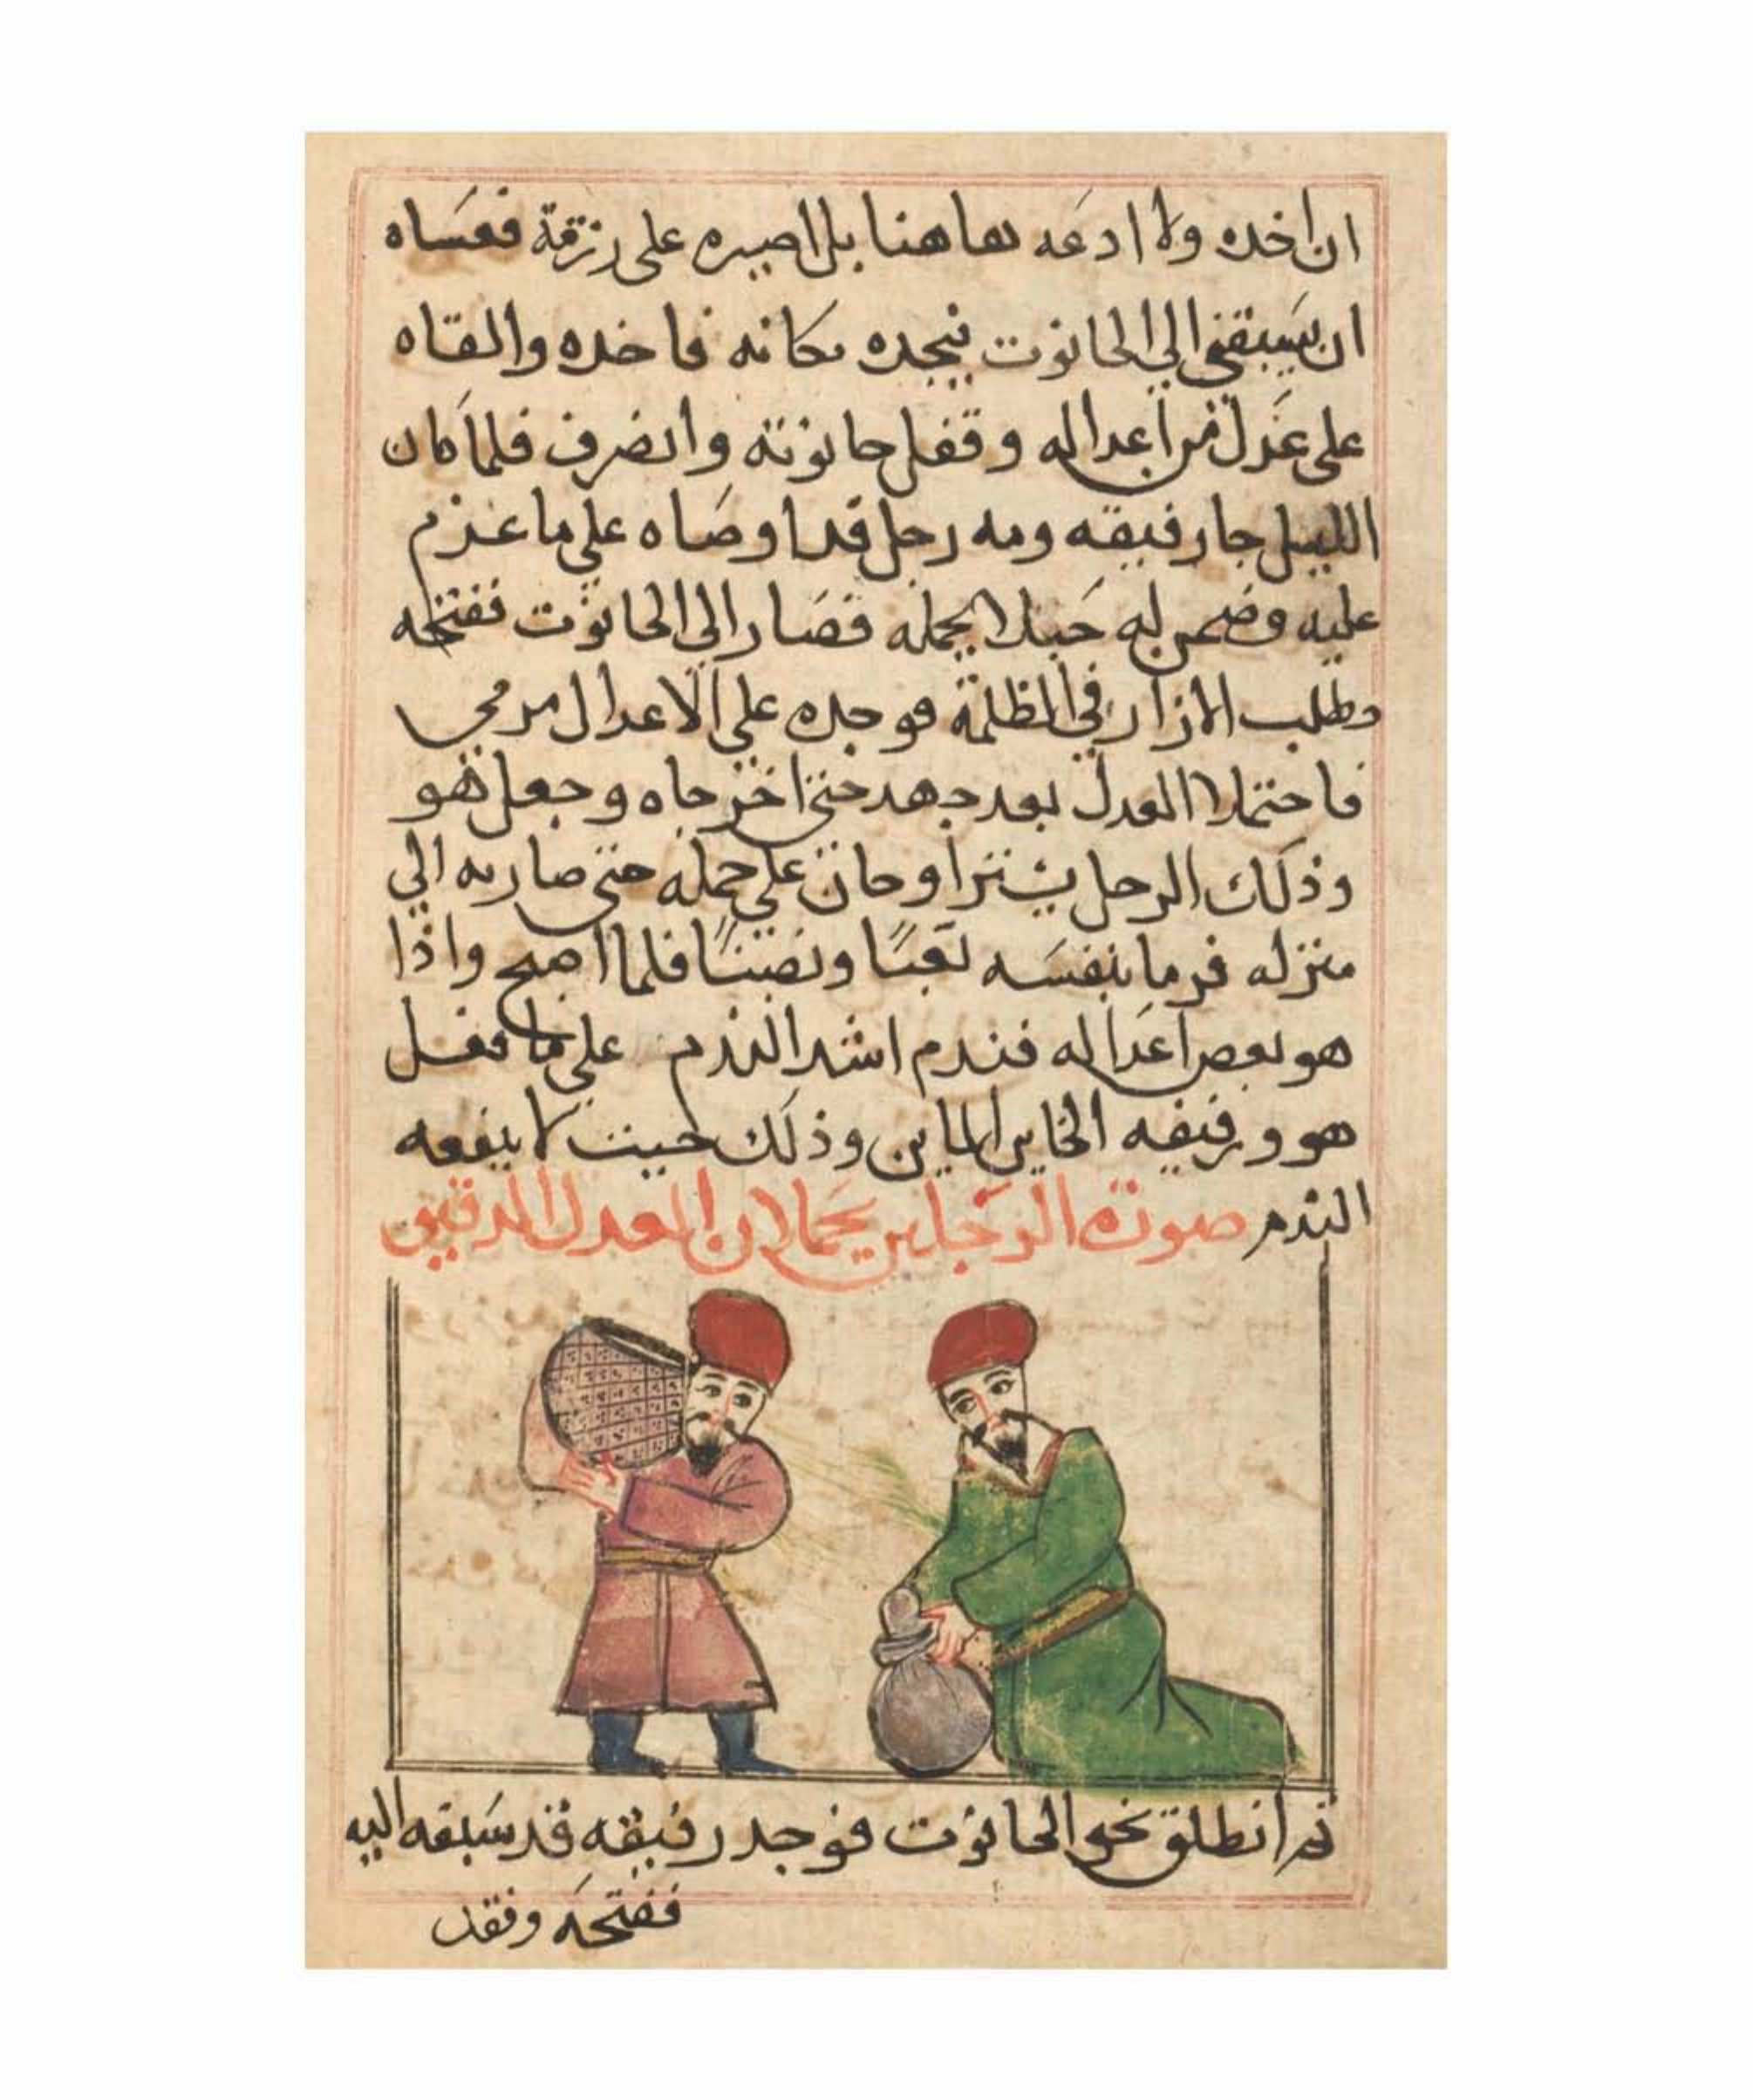 ان اخده ولا ادعه هاهنا بل اصيره على رزمة فعساه
ان يسبقني الي الحانوت فيجده مكانه فاخده والقاه
على عدل من اعداله وقفل حانوته وانصرف فلما كان
الليل جا رفيقه ومه رجل قد اوصاه علي ما عزم
عليه وضمن له حملا يحمله فصار الى الحانوت ففتحه
وطلب الازار في الظلمة فوجده علي الاعدال مرمي
فاحتملا العدل بعد جهد حتى اخرجاه وجعل هو
وذلك الرجل يتراوحان علي حمله حتى صار به الي
منزله فرما بنفسه تعبًا ونصبًا فلما اصبح واذا
هو بعض اعداله فندم اشد الندم علي ما فعل
هو ورفيقه الخاين وذلك حيت لا ينفعه
الندم صورة الرجلين يحملان العدل الدقيق
تم انطلق نحو الحانوت فوجد رفيقه قد سبقه اليه
ففتحه وفقد